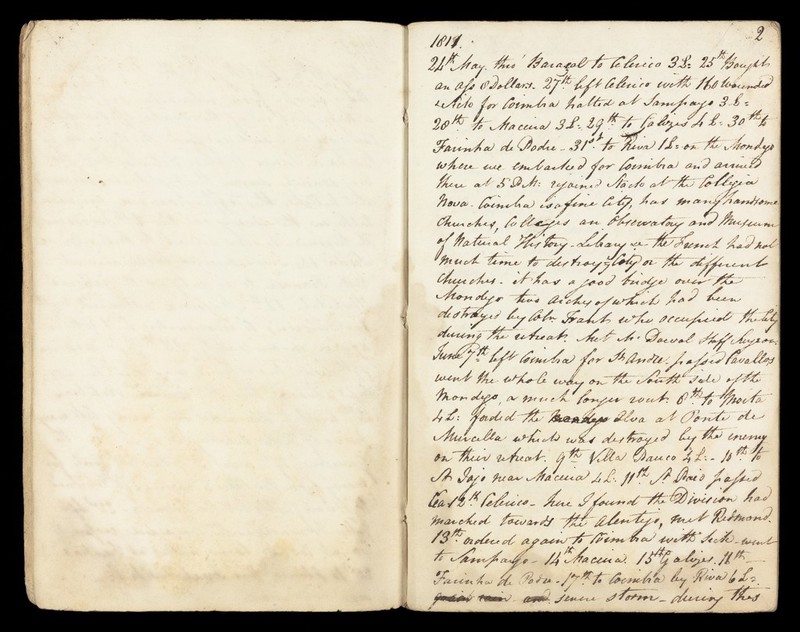 2
1811.
24th May. thro' Baraçal to Celerico 3 L= 25th Bought
an ass 8 Dollars. 27th left Celerico with 160 wounded
& sick for Coimbra halted at Sampayo 3 L=
28th to Maceira 3 L= 29th to Galizes 4 L= 30th to
Farinha de Podre - 31st to Riva 1 L= on the Mondego
where we embarked for Coimbra and arrived
there at 5 P.M: rejoined at the Collegia
Nova. Coimbra is a fine City, has many handsome
Churches, Colleges an Observatory and Museum
of Natural History - Library &c the French had not
much time to destroy ye City or the different
Churches - it has a good bridge over the
Mondego two arches of which had been
destroyed by Coln Trant who occupied the City
during the retreat. Met Mr Staff Surgeon
June 7th left Coimbra for St Andre. passed Cavallos
went the whole way on the South side of the
Mondego, a much longer rout. 8th to Moita
4 L: forded the Mondego Alva at Ponte de
Murcella which was destroyed by the enemy
on their retreat. 9th Villa 4 L: - 10th to
St Jago near Maceira 4 L: 11th St Paio passed
12th Celerico - here I found the Division had
marched towards the Alentejo, met Redmond.
13th ordered again to Coimbra with sick - went
to Sampayo - 14th Maceira. 15th Galizes 16th -
Farinha de Podre - 17th to Coimbra by Riva 6 L=.
great rain and severe storm - during this